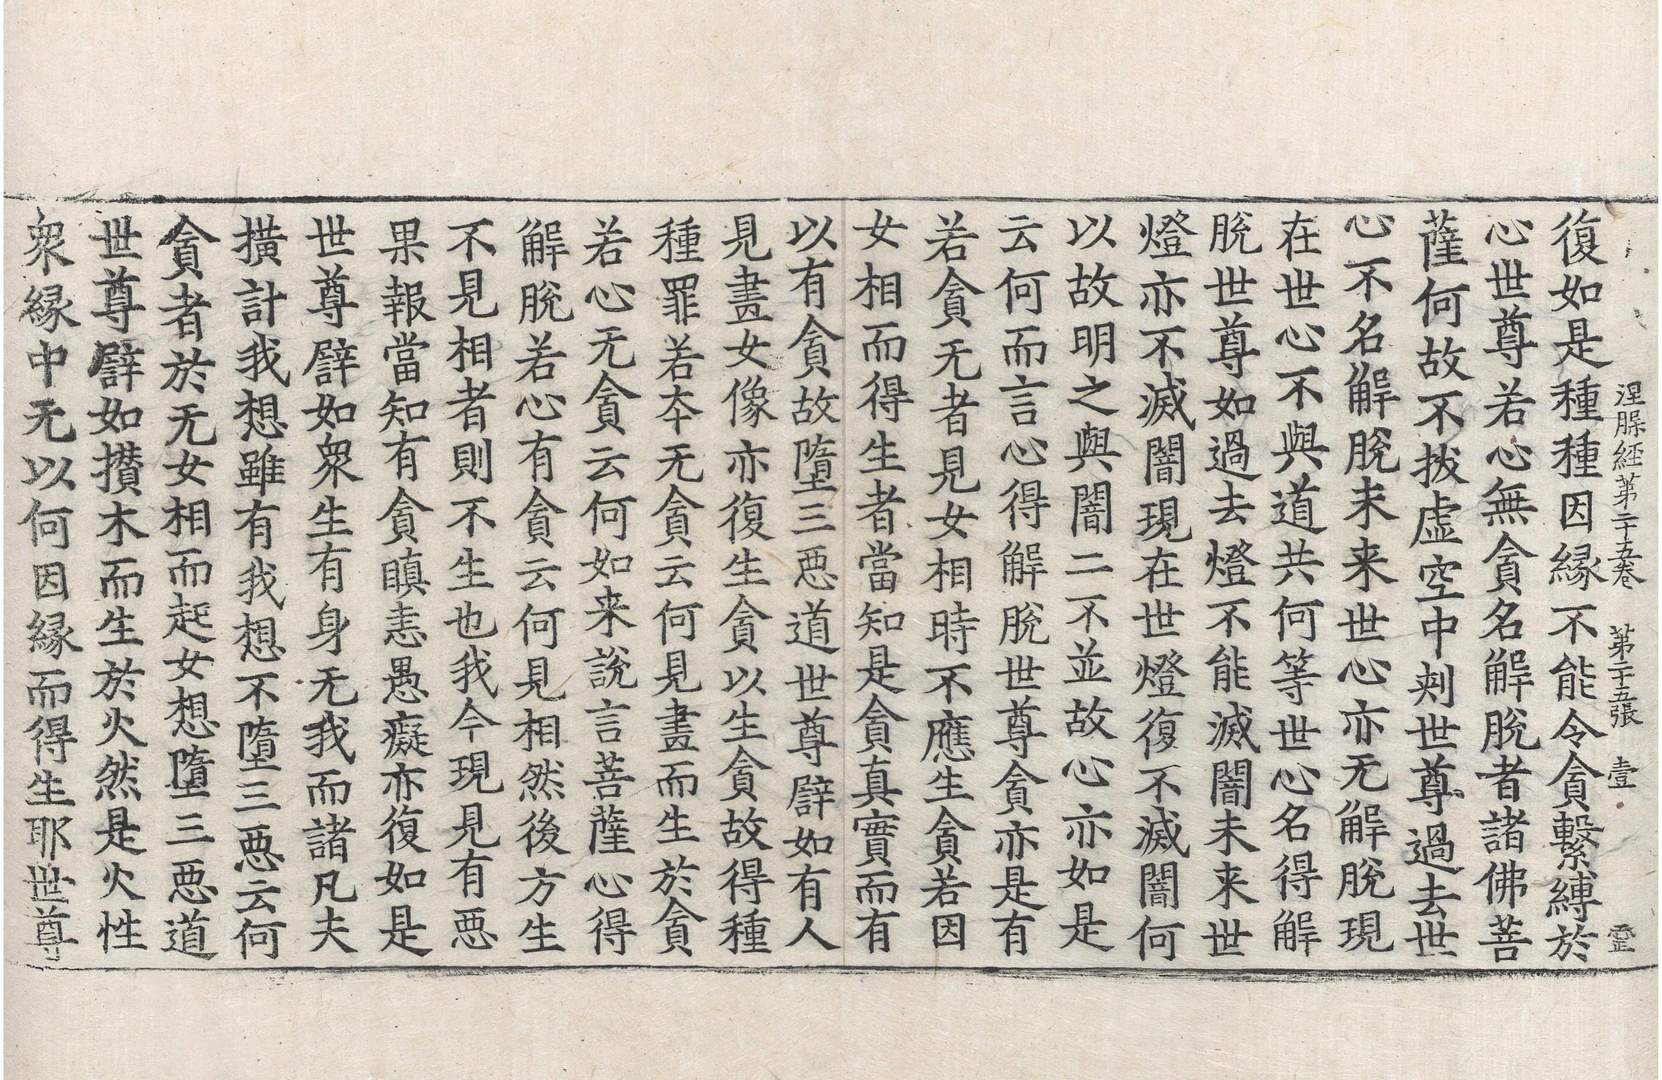 涅槃経第二十五巻　第二十五張　壹　霊
復如是種種因縁不能令貪繫縛於
心世尊若心無貪名解脫者諸佛菩
薩何故不拔虛空中刺世尊過去世
心不名解脫未来世心亦无解脫現
在世心不與道共何等世心名得解
脫世尊如過去燈不能滅闇未来世
燈亦不滅闇現在世燈復不滅闇何
以故明之與闇二不並故心亦如是
云何而言心得解脫世尊貪亦是有
若貪无者見女相時不應生貪若因
女相而得生者當知是貪真實而有
以有貪故墮三惡道世尊譬如有人
見畫女像亦復生貪以生貪故得種
種罪若本无貪云何見畫而生於貪
若心无貪云何如来說言菩薩心得
解脫若心有貪云何見相然後方生
不見相者則不生也我今現見有惡
果報當知有貪瞋恚愚癡亦復如是
世尊譬如衆生有身无我而諸凡夫
撗計我想雖有我想不墮三惡云何
貪者於无女相而起女想墮三惡道
世尊譬如攢木而生於火然是火性
衆縁中无以何因縁而得生耶世尊